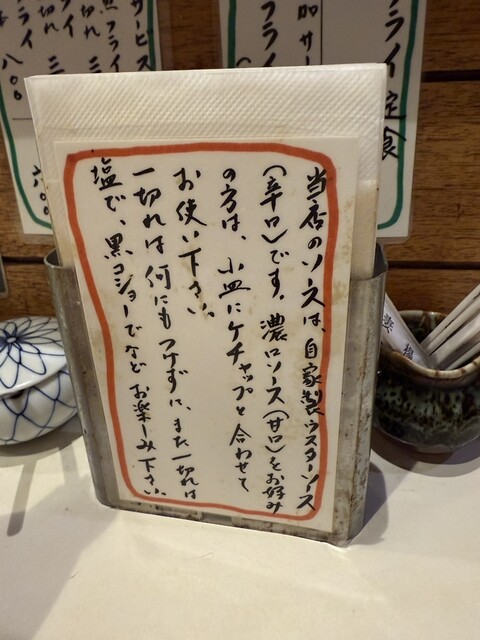 当店のソースは、自家製ウスターソース
(辛口)です。濃口ソース(甘口)をお好み
の方は、小皿にケチャップと合わせて
お使い下さい。
一切れは何にもつけずに、また一切れは
塩で、黒コショーでなど お楽しみ下さい。
フライ定食
サービス
フライ